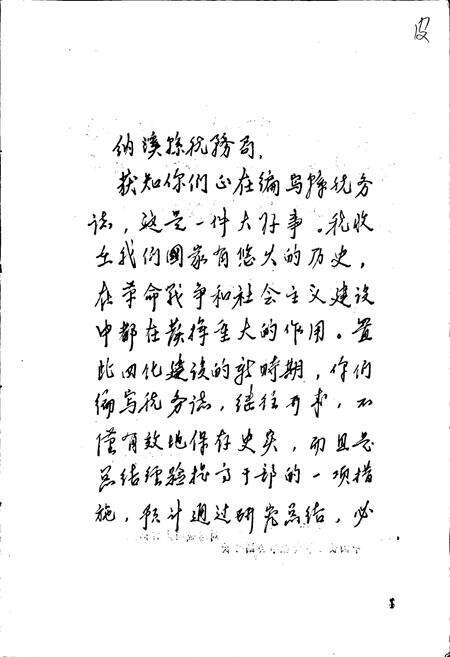 纳溪縣税務局，
获知你们正在编写縣税务
志，这是一件大好事。税收
在我们国家有悠久的历史，
在革命战争和社会主义建设
中都在发揮重大的作用。置
此四化建设的新時期，你们
编写税务志，继往开来，不
僅有效地保存史实，而且是
总结经验提高干部的一项措
施，预计通过研究总结，必